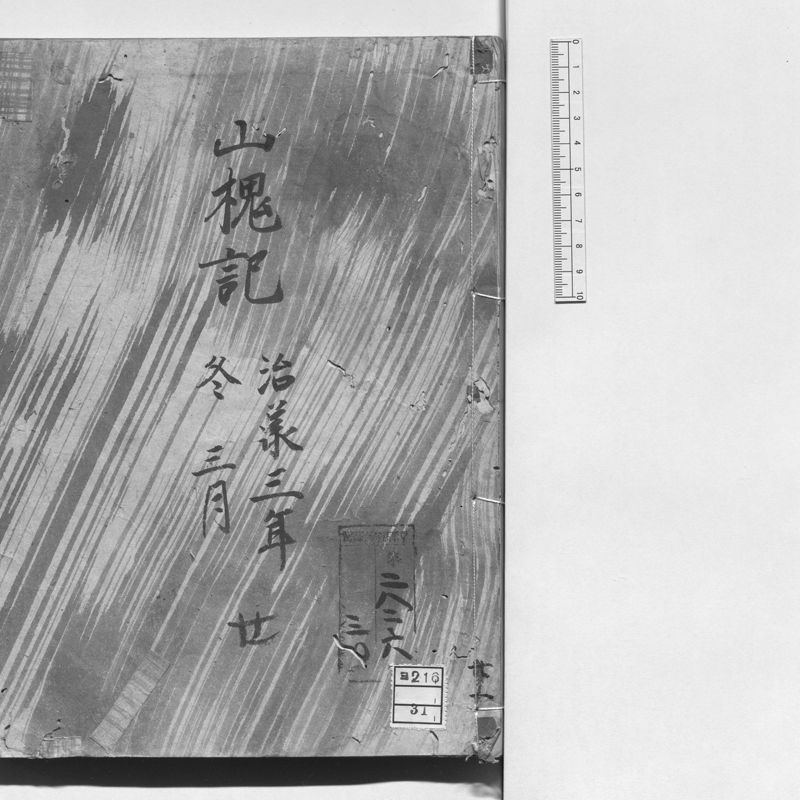 山槐記
治羕三年
冬 三月
廿
二八三六
三〇
廿一
ヨ216
31
0 1 2 3 4 5 6 7 8 9 10